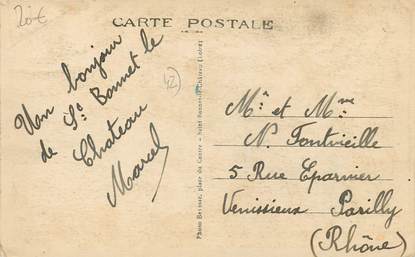 20€
CARTE POSTALE
Un bonjour
de St Bonnet le
Chateau
Marcel
42
Photo Besson, place du Centre - Saint-Bonnet-le-Château (Loire)
Mr et Mme
N. Fontvieille
5 Rue Eparnier
Venissieux Parilly
(Rhône)